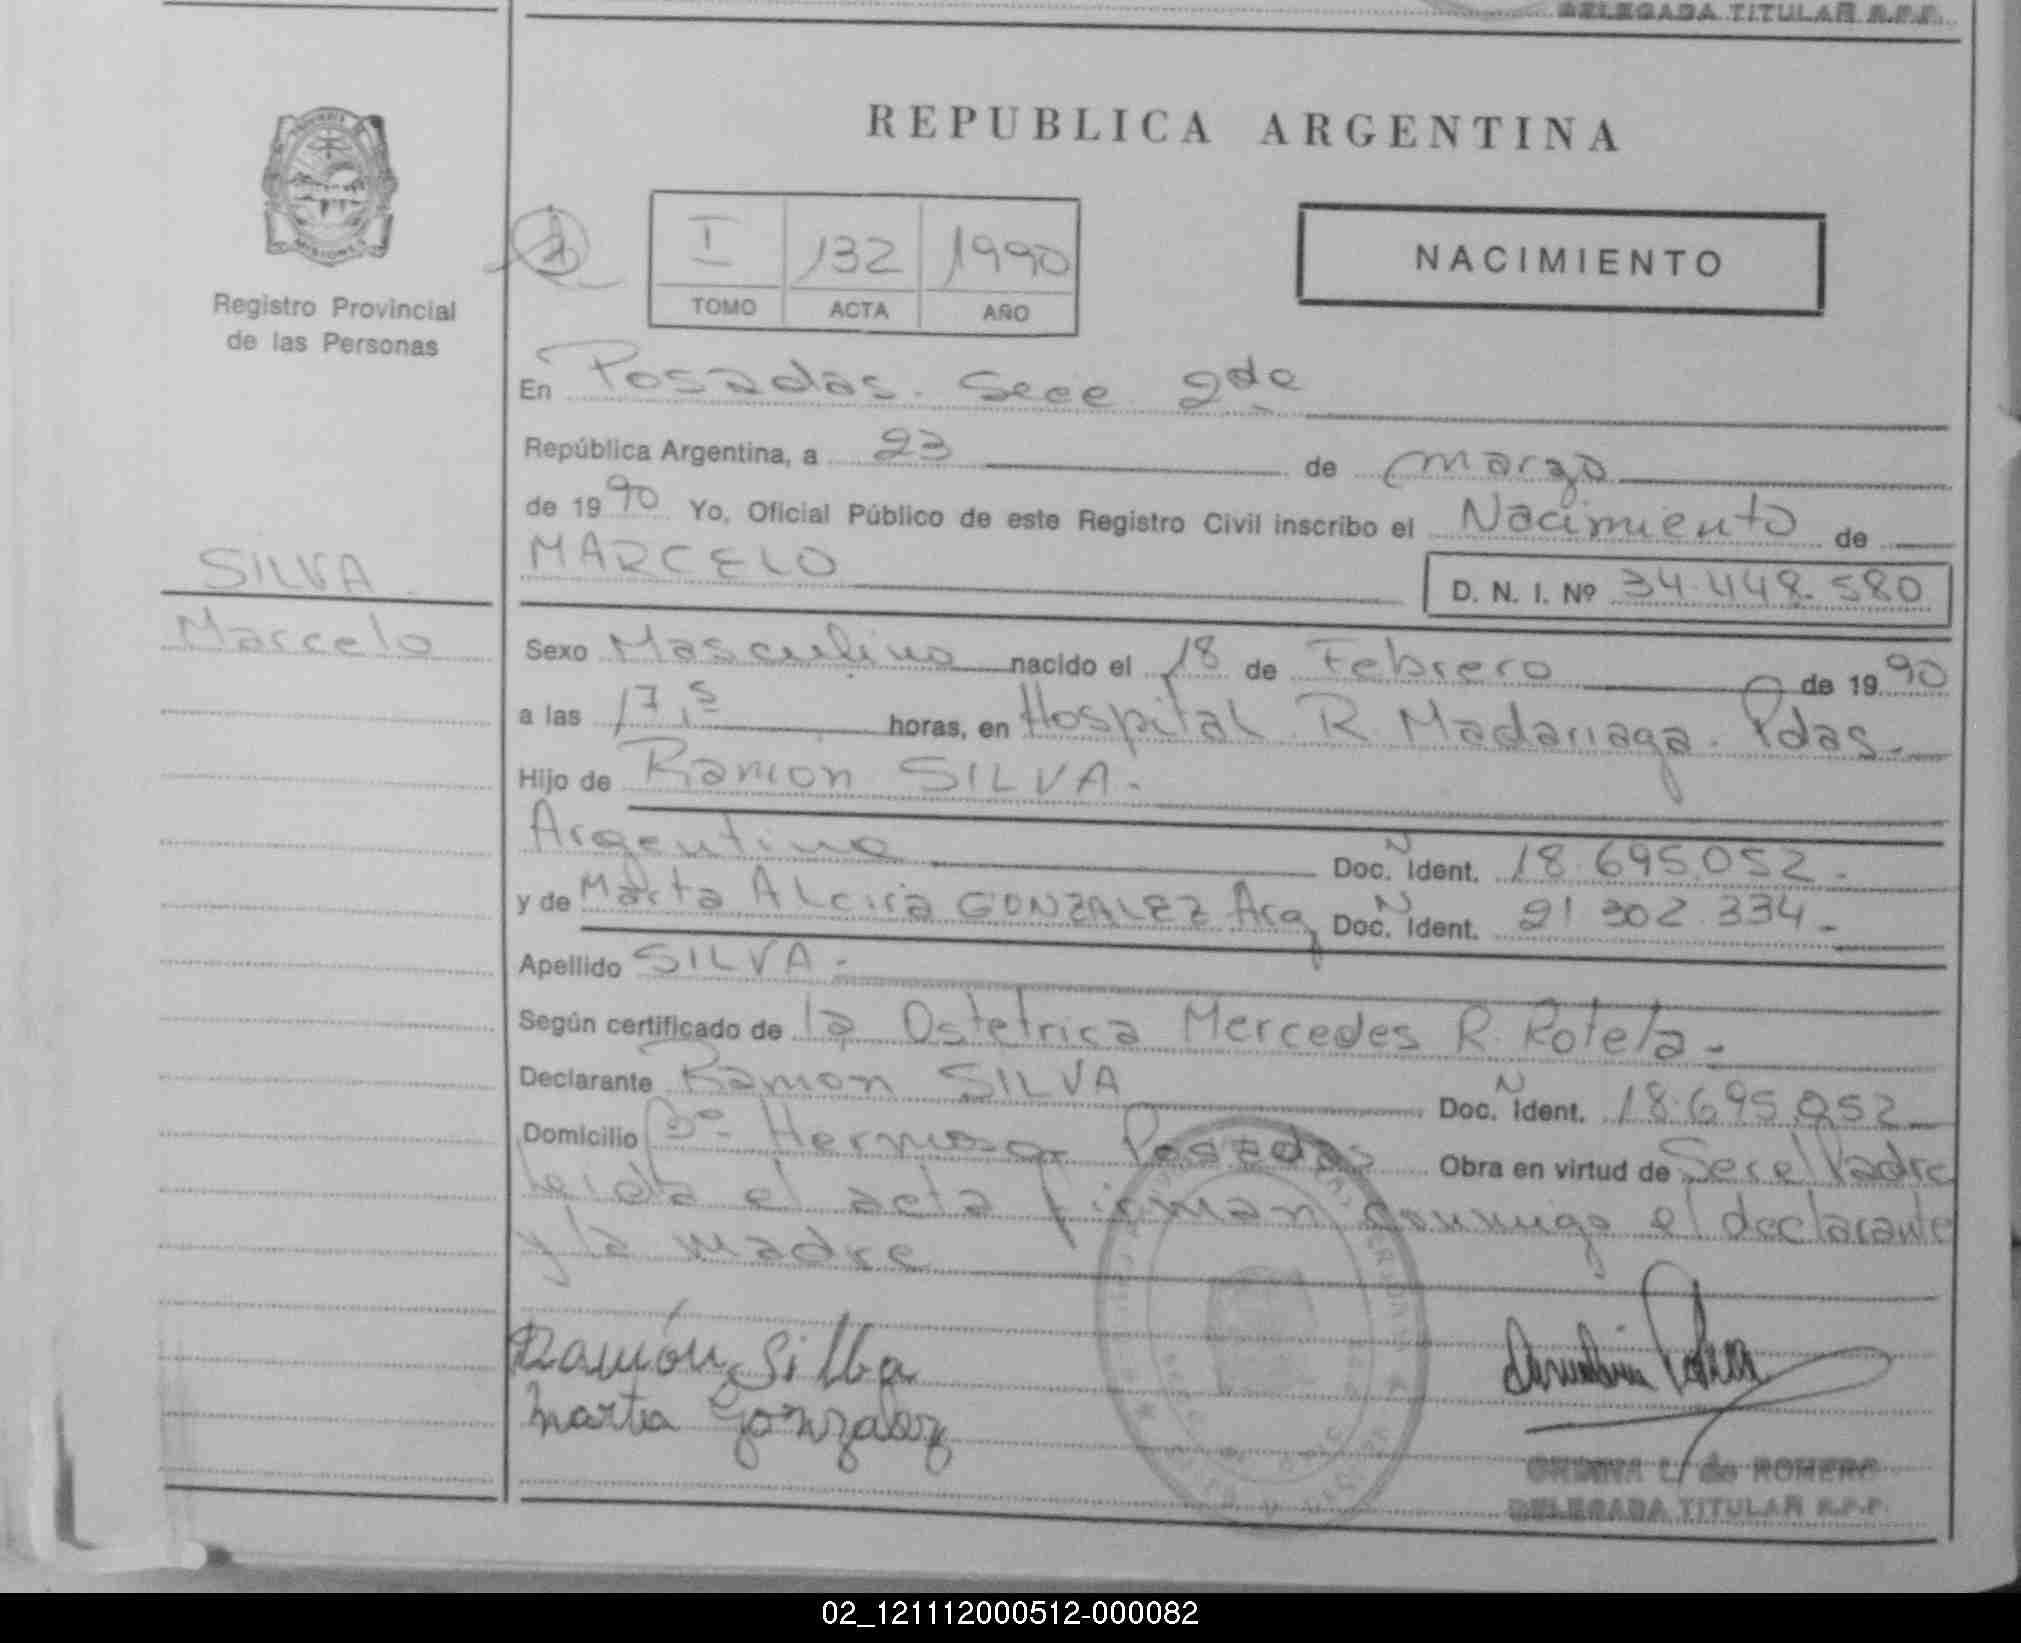 DELEGADA TITULAR R.P.P.
REPUBLICA ARGENTINA
I 132 1990
TOMO ACTA AÑO
NACIMIENTO
MISIONES
Registro Provincial
de las Personas
En Posadas. Secc 2da
República Argentina, a 23 de marzo
de 1990 Yo, Oficial Público de este Registro Civil inscribo el Nacimiento de
MARCELO
D. N. I. Nº 34.448.580
SILVA
Marcelo
Sexo Masculino nacido el 18 de Febrero de 1990
a las 17,5 horas, en Hospital R Madariaga. Pdas.
Hijo de Ramon SILVA.
Argentino Doc. N Ident. 18.695.052.
y de Marta Alcira GONZALEZ Arg Doc. N Ident. 21 302 334
Apellido SILVA.
Según certificado de la Ostetrica Mercedes R. Rotela
Declarante Ramon SILVA Doc. N Ident. 18.695.052
Domicilio Bº Hermoso Posadas Obra en virtud de Ser el Padre
leida el acta firman conmigo el declarante
y la madre
Ramón Silba
Marta Gonzalez
L. de ROMERO
DELEGADA TITULAR R.P.P.
02_121112000512-000082